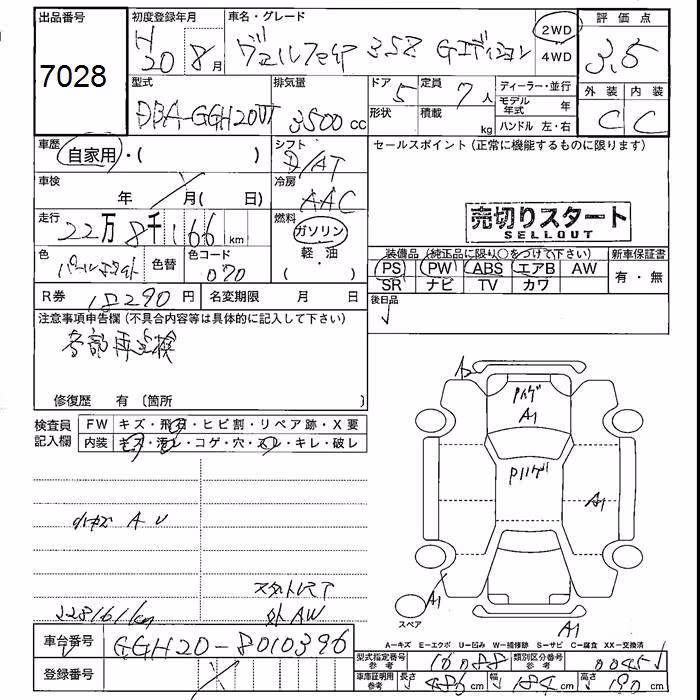 出品番号
7028
初度登録年月
H20 8月
車名・グレード
ヴェルファイア 3.5Z Gエディション
2WD
4WD
評価点
3.5
外装 内装
C C
型式
DBA-GGH20W
排気量
3500cc
ドア 5
形状
定員 7人
積載 kg
ディーラー・並行
モデル年式 年
ハンドル 左・右
車歴
自家用・( )
シフト
D/AT
セールスポイント(正常に機能するものに限ります)
車検
年 / 月( 日)
冷房
AAC
売切りスタート
SELLOUT
走行
22万8千166km
燃料
ガソリン
軽・油
色
パールホワイト
色替
色コード
070
装備品(純正品に限り○をつけて下さい)
PS PW ABS エアB AW
SR ナビ TV カワ
新車保証書
有・無
R券
18290円
名変期限 月 日
後日品
注意事項申告欄(不具合内容等は具体的に記入して下さい)
各部再点検
修復歴 有〔箇所 〕
検査員記入欄
FW キズ・飛石・ヒビ割・リペア跡・X要
内装 キズ・汚レ・コゲ・穴・スレ・キレ・破レ
小キズ A U
228161km
外AW
A2
Pハゲ
A1
Pハゲ
A1
A1
A1
スペア
A-キズ E-エクボ U-凹み W-補修跡 S-サビ C-腐食 XX-交換済
車台番号
GGH20-8010396
登録番号
/
型式指定番号 参考
16088
類別区分番号 参考
0045
車庫証明用 参考
長さ 486cm
幅 184cm
高さ 190cm